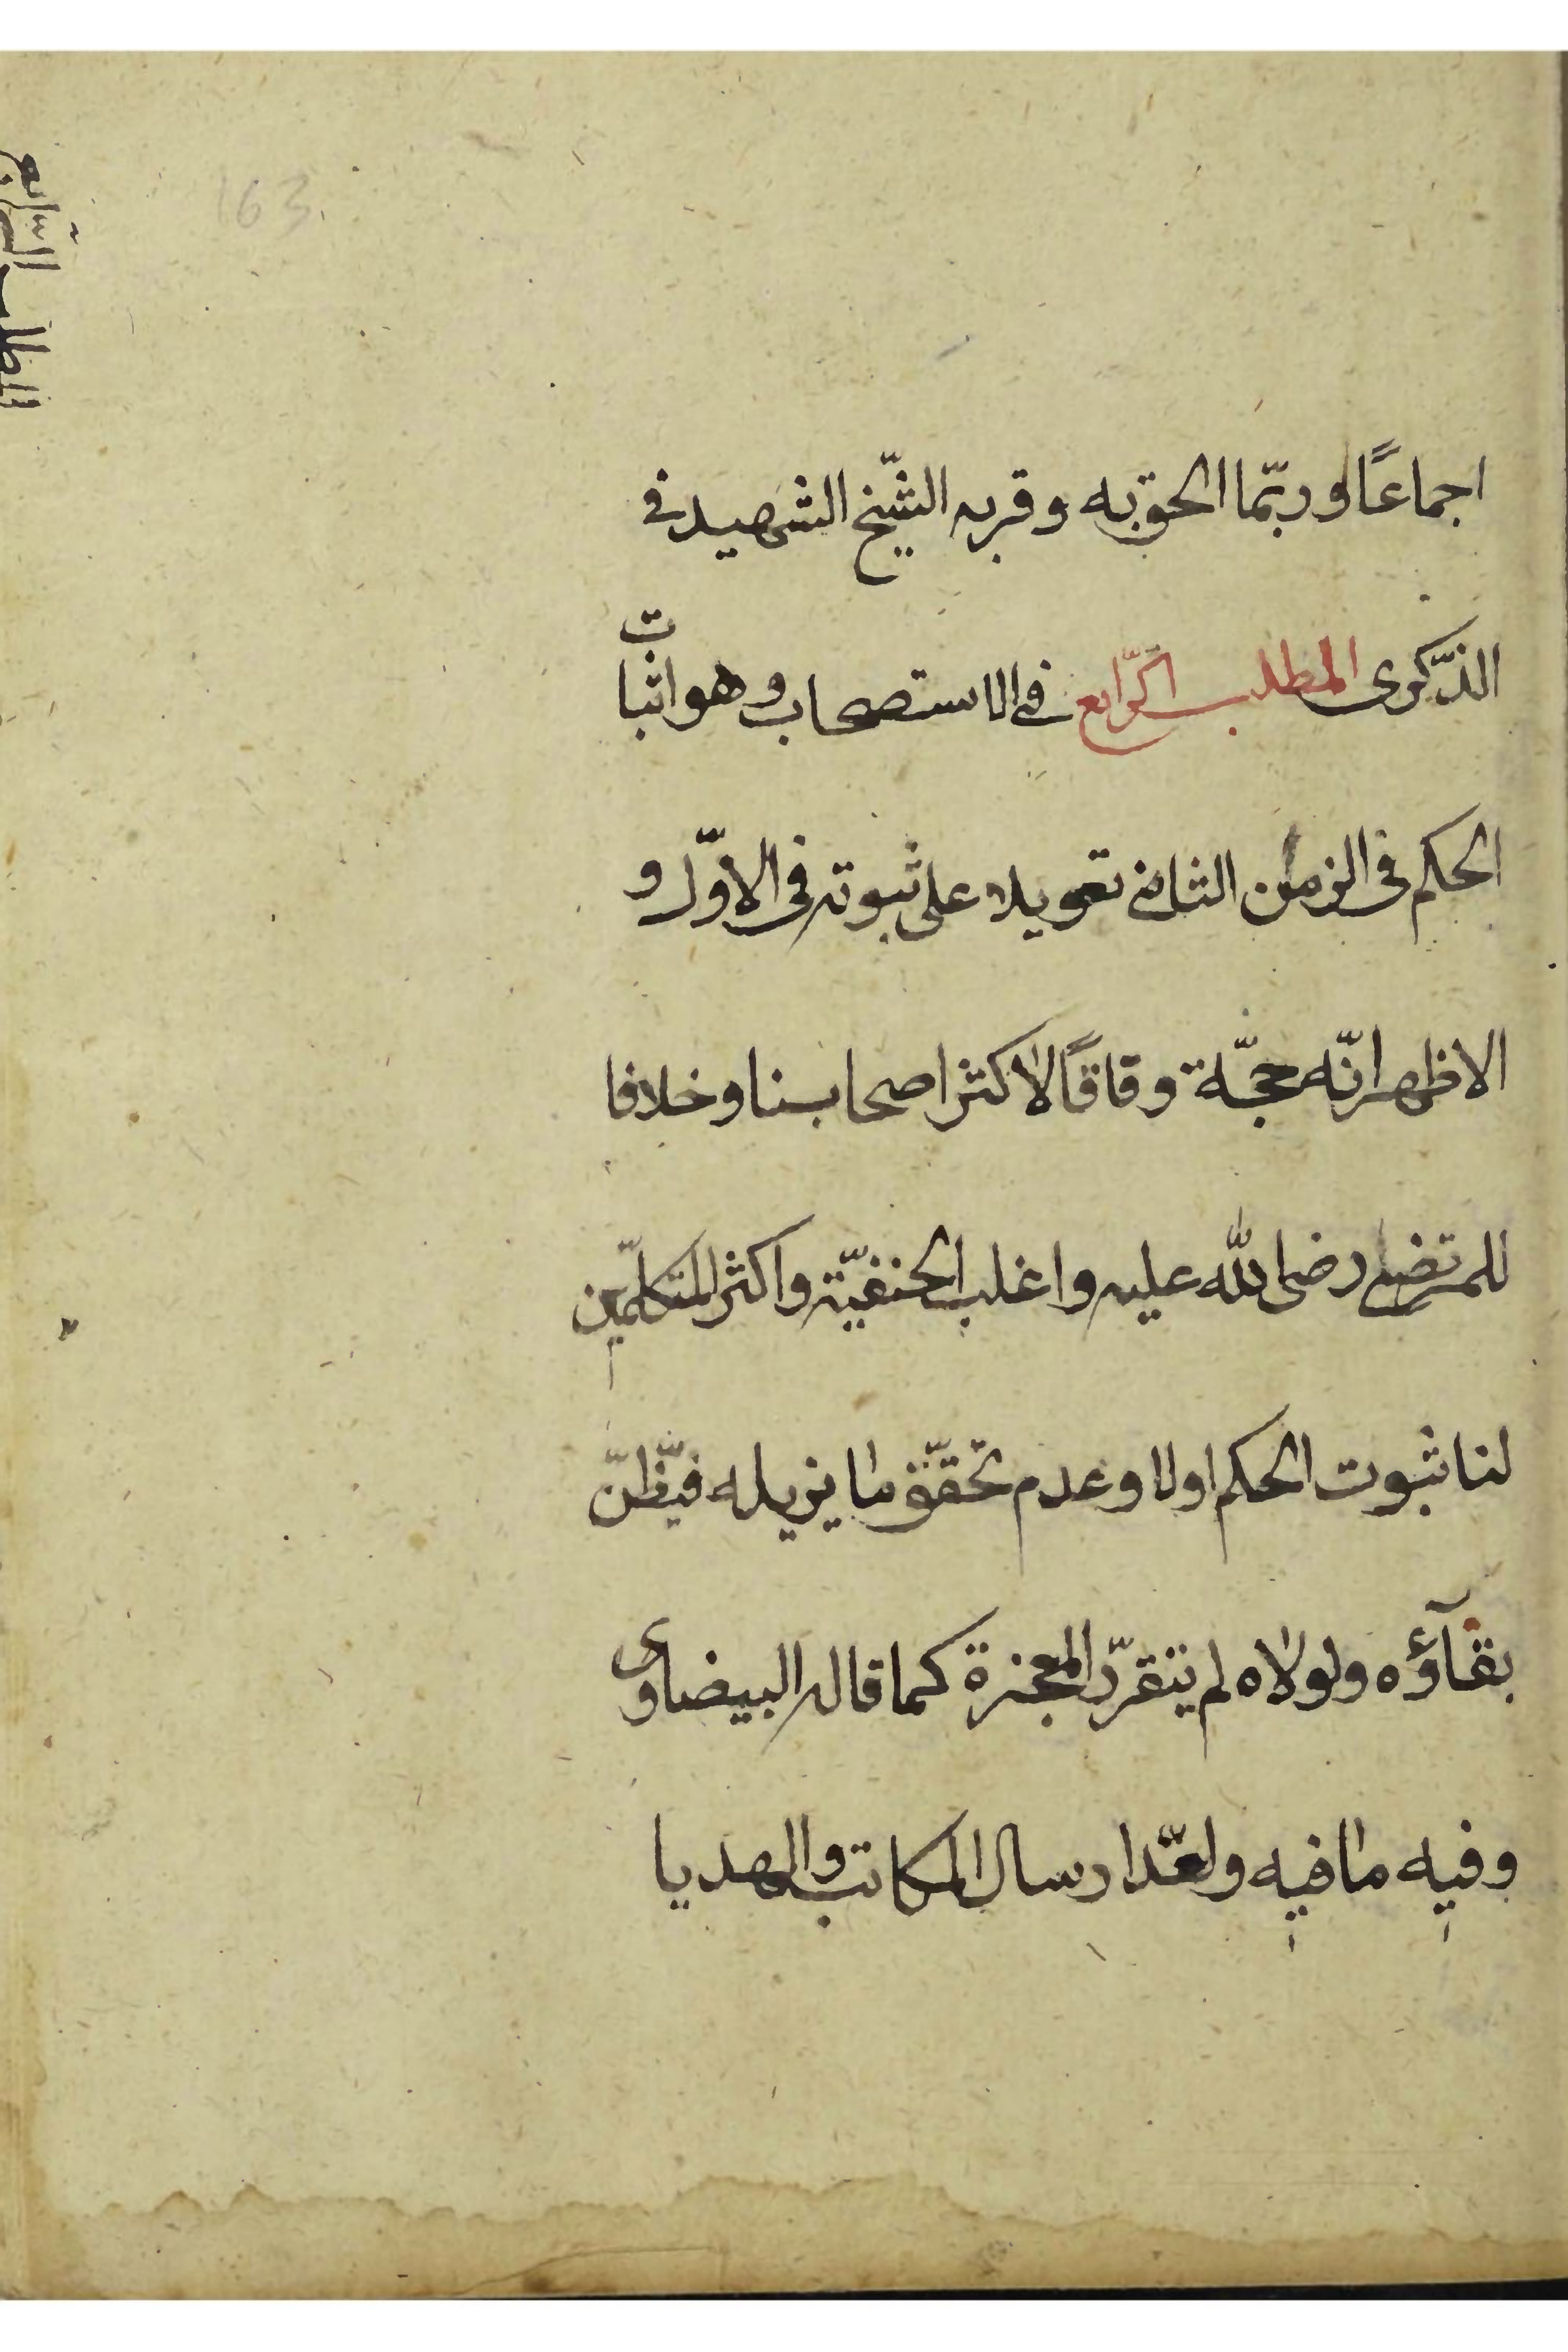 163
المطلب الرّابع
اجماعًا وربّما الحق به وقربه الشّيخ الشهيد فى
الذّكرى المطلب الرّابع فى الاستصحاب وهو اثبات
الحكم فى الزمان الثانى تعويلا على ثبوته فى الاوّل و
الاظهر انّه حجّة وفاقًا لاكثر اصحابنا وخلافا
للمرتضى رضى الله عليه واغلب الحنفيّة واكثر المتكلمّين
لنا ثبوت الحكم اولا وعدم تحقّق ما يزيله فيظنّ
بقآؤه ولولاه لم يتقرّر المعجزة كما قاله البيضاوى
وفيه ما فيه ولعدّ ارسال المكاتب والهديا